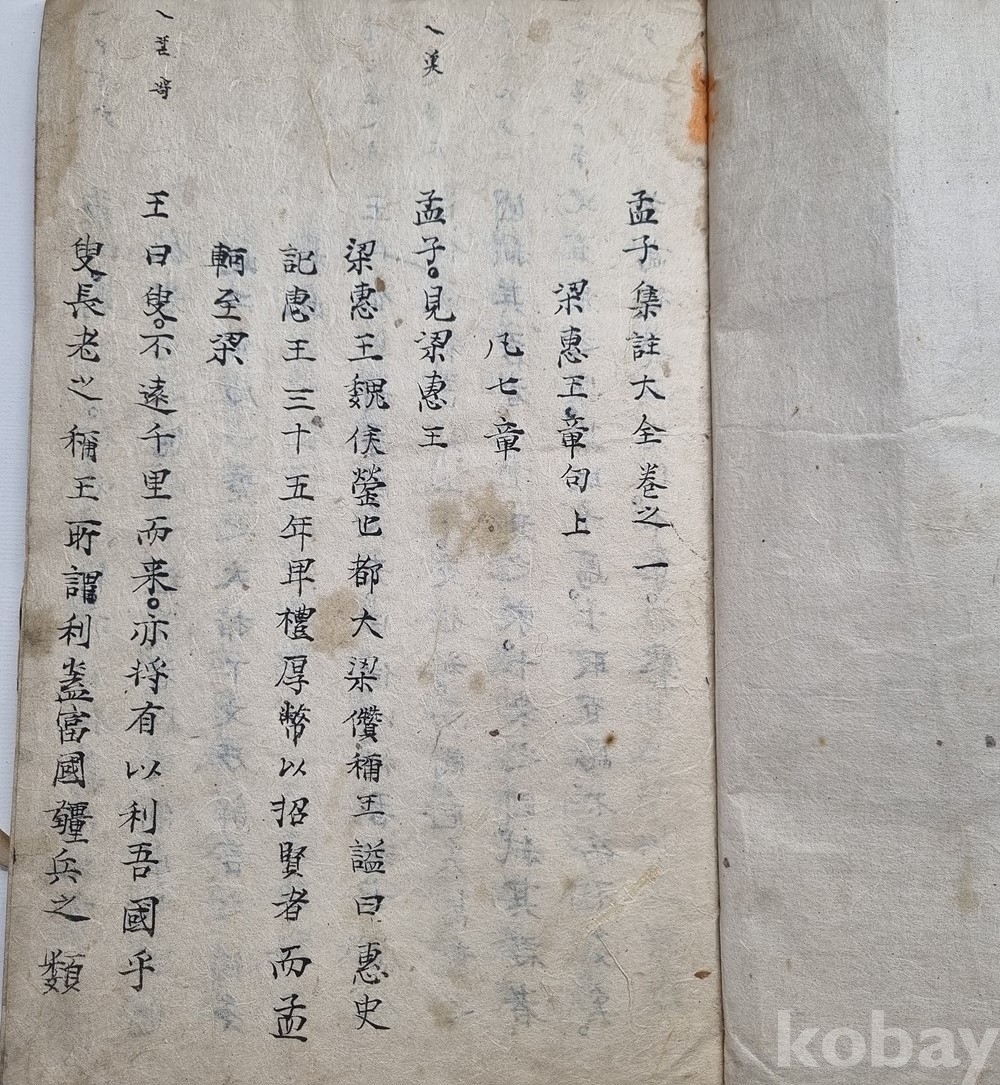 孟子集註大全卷之一
梁惠王章句上
凡七章
孟子。見梁惠王
梁惠王魏侯罃也都大梁僭稱王謚曰惠史
記惠王三十五年卑禮厚幣以招賢者而孟
軻至梁
王曰叟。不遠千里而来。亦将有以利吾國乎
叟。長老之。稱王所謂利盖富國疆兵之類
kobay